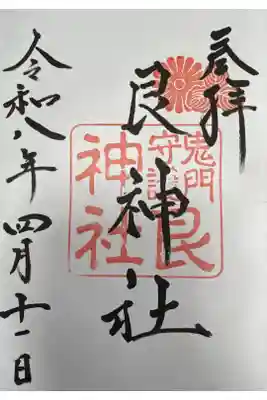 奉拝
艮神社
令和八年四月十一日
鬼門
守護
艮
神社